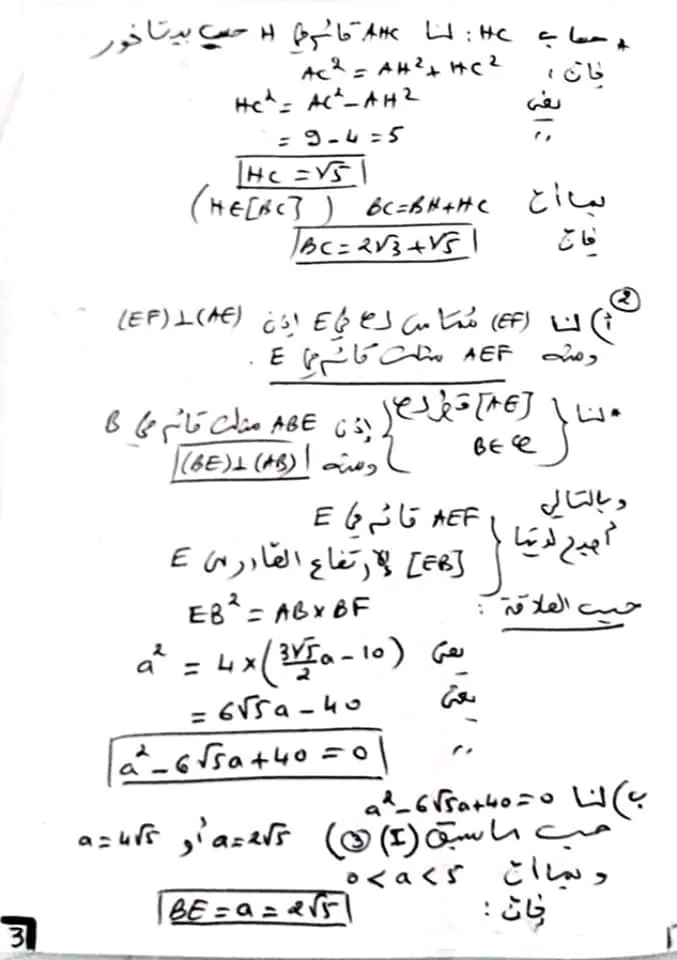 * حساب HC: لنا AHC قائم في H حسب بيتاغور
فإن: AC² = AH² + HC²
يعني HC² = AC² - AH²
" = 9 - 4 = 5
HC = √5
بما أن BC = BH + HC (H∈[BC])
فإن BC = 2√3 + √5
②
أ) لنا (EF) مماس لـ في E إذن (EF)⊥(AE)
ومنه AEF مثلث قائم في E.
* لنا { [AE] قطر لـ
B∈ } إذن ABE مثلث قائم في B
ومنه (BE)⊥(AB)
وبالتالي
أصبح لدينا { AEF قائم في E
[EB] الارتفاع الصادر من E
حسب العلاقة:
EB² = AB × BF
يعني a² = 4 × (3√5/2 a - 10)
يعني = 6√5a - 40
" a² - 6√5a + 40 = 0
ب) لنا a² - 6√5a + 40 = 0
حسب ما سبق (I) ③) a = 2√5 أو a = 4√5
وبما أن 0 < a < 5
فإن: BE = a = 2√5
3